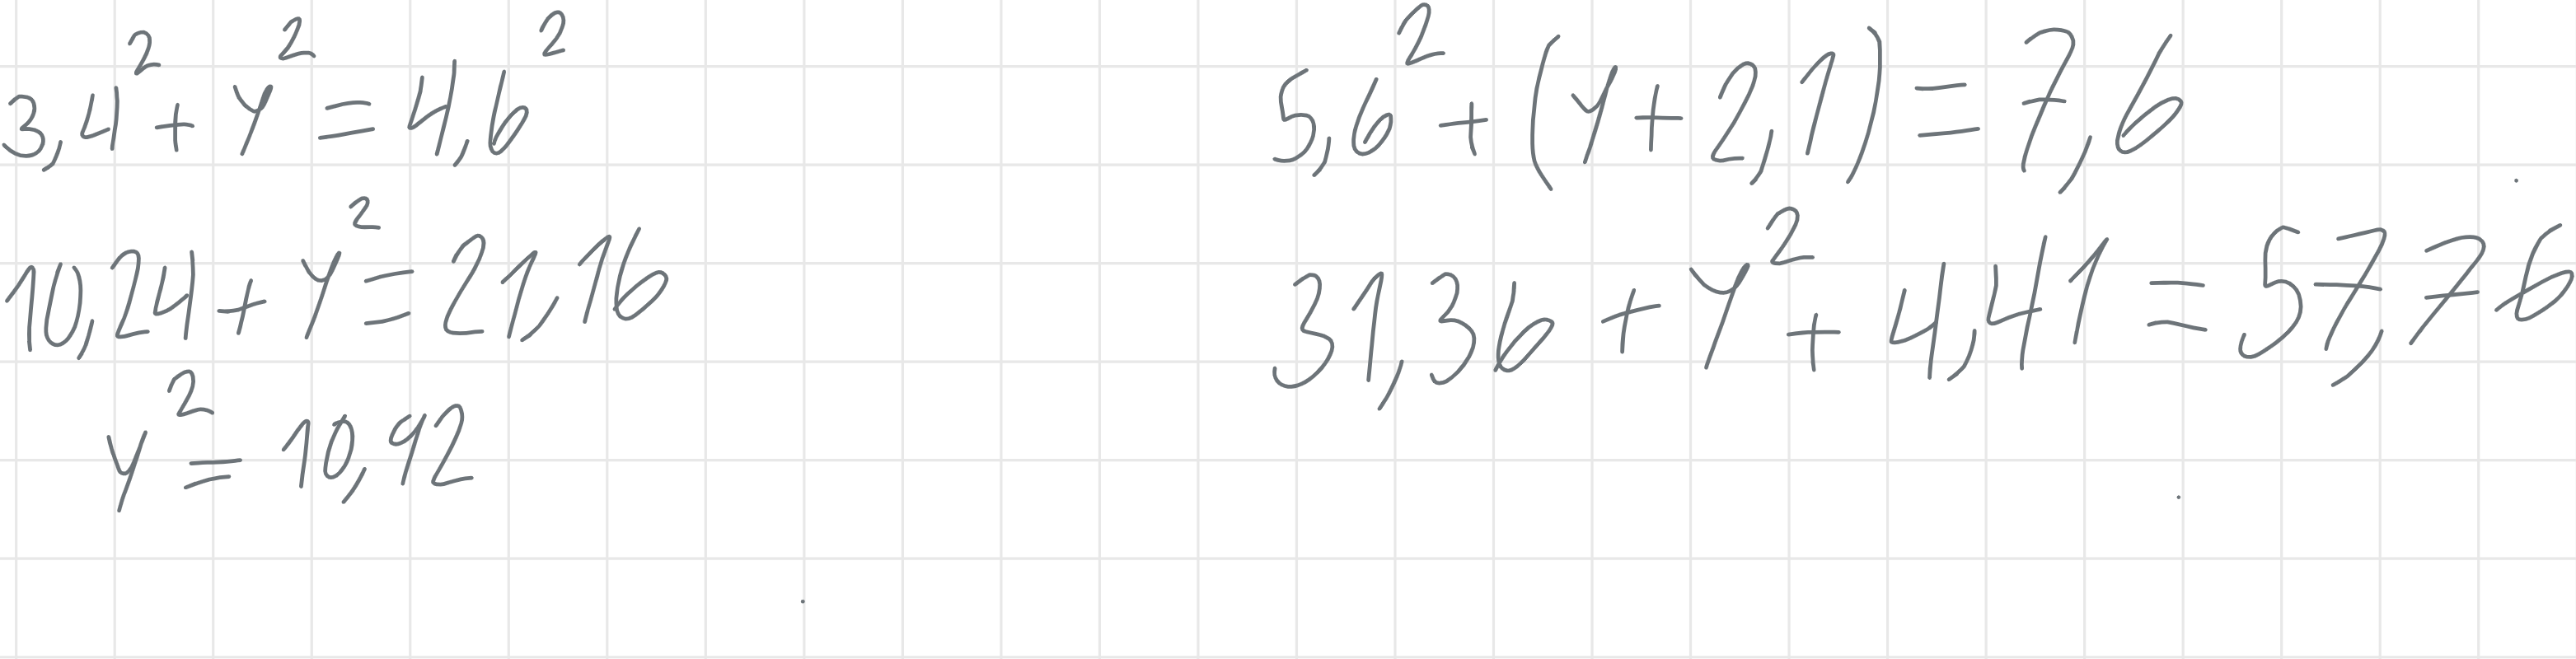 3,4² + y² = 4,6²
10,24 + y² = 21,16
y² = 10,92
5,6² + (y + 2,1) = 7,6
31,36 + y² + 4,41 = 57,76